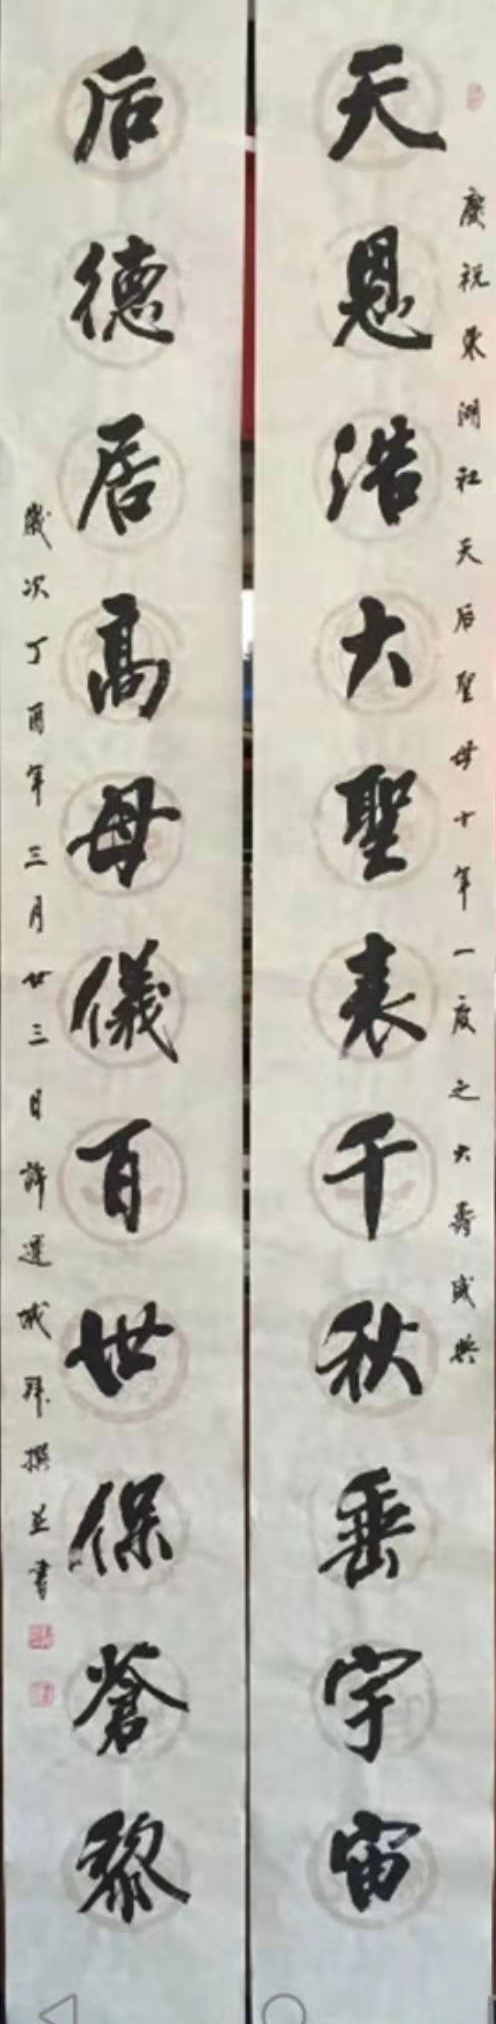 慶祝東湖社天后聖母十年一度之大壽盛典
天恩浩大聖表千秋垂宇宙
后德居高母儀百世保蒼黎
歲次丁酉年三月廿三日許遥城拜撰並書